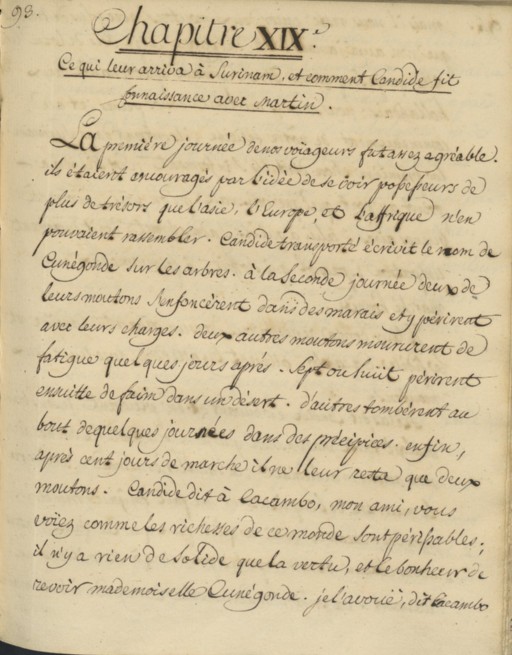 93.
Chapitre XIX.e
Ce qui leur arriva à Surinam, et comment Candide fit
connaissance avec Martin.
La première journée de nos voiageurs fut assez agréable.
ils étaient encouragés par l'idée de se voir possesseurs de
plus de trésors que l'asie, l'Europe, et l'affrique n'en
pouvaient rassembler. Candide transporté écrivit le nom de
Cunégonde sur les arbres. à la seconde journée deux de
leurs moutons s'enfoncèrent dans des marais et y périrent
avec leurs charges. deux autres moutons moururent de
fatigue quelques jours après. Sept ou huit périrent
ensuitte de faim dans un désert. d'autres tombèrent au
bout de quelques journées dans des précipices. enfin,
après cent jours de marche il ne leur resta que deux
moutons. Candide dit à Cacambo, mon ami, vous
voiez comme les richesses de ce monde sont périssables;
il n'y a rien de solide que la vertu, et le bonheur de
revoir mademoiselle Cunégonde. je l'avouë, dit Cacambo